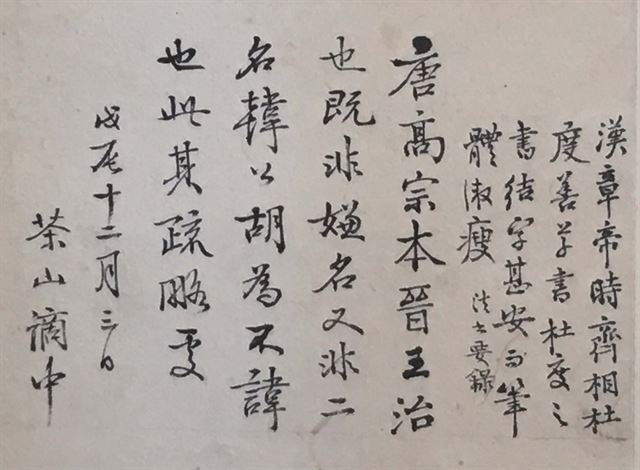 漢章帝時齊相杜
度善草書杜度之
書結字甚安而筆
體微瘦 法書要錄
唐高宗本晉王治
也既非嫌名又非二
名韓公胡為不諱
也此其疏略處
戊辰十二月三日
茶山謫中